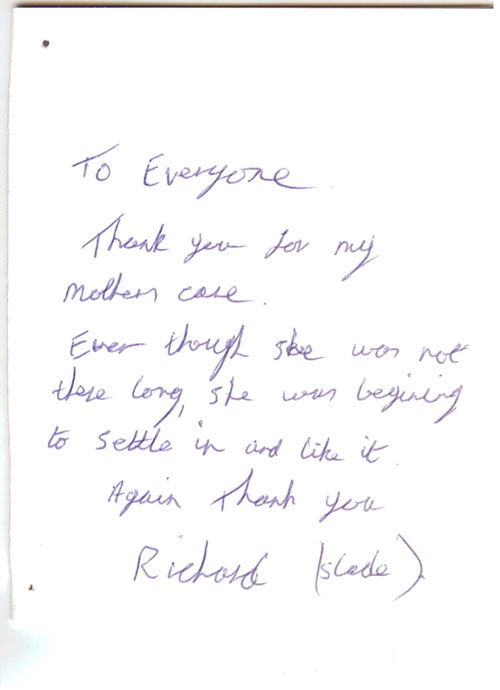 To Everyone.
Thank you for my
mothers care.
Even though she was not
there long, she was begining
to settle in and like it.
Again thank you
Richard (Slade)